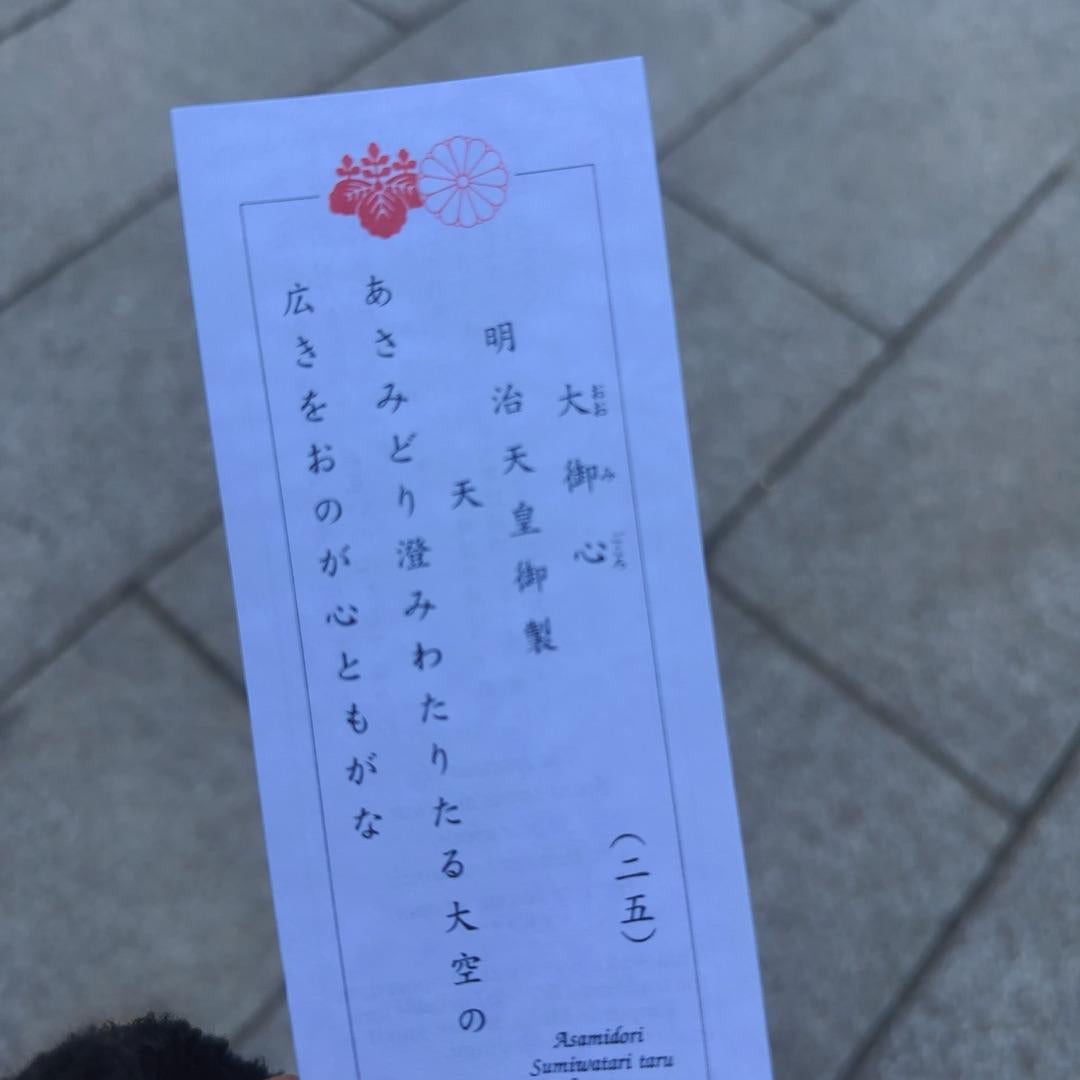 大御心
おおみごころ
（二五）
明治天皇御製
天
あさみどり澄みわたりたる大空の
広きをおのが心ともがな
Asamidori
Sumiwatari taru